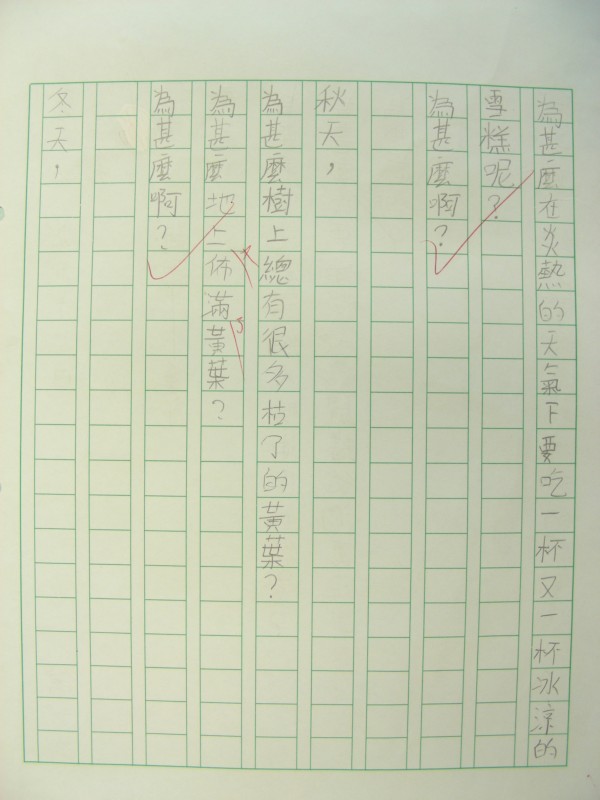 為甚麼在炎熱的天氣下要吃一杯又一杯冰涼的
雪糕呢？
為甚麼啊？
秋天，
為甚麼樹上總有很多枯了的黃葉？
為甚麼地上佈滿黃葉？
為甚麼啊？
冬天，